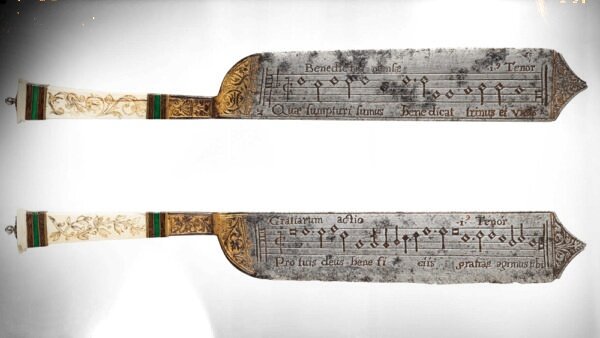 Benedictio mensæ .1⁹ Tenor
Quæ sumpturi sumus bene dicat trinus et vnus
Gratiarum actio .1⁹ Tenor
Pro tuis deus bene fi ciis gratias agimus tibi